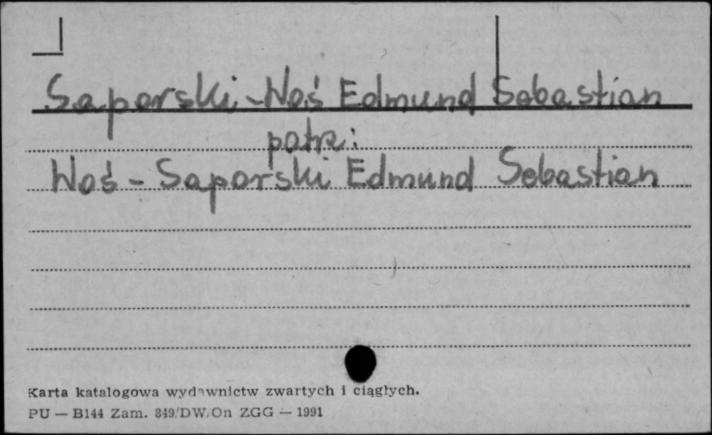 Saporski-Woś Edmund Sebastian
patrz:
Woś-Saporski Edmund Sebastian
Karta katalogowa wydawnictw zwartych i ciągłych.
PU — B144 Zam. 849/DW/On ZGG — 1991